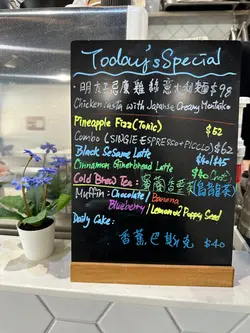 Today's Special
明太子忌廉雞髀意大利麵 $98
Chicken Pasta with Japanese Creamy Mentaiko
Pineapple Fizz (Tonic) $62
Combo (SINGLE ESPRESSO + PICCLO) $62
Black Sesame Latte $40/$45
Cinnamon Ginerbread Latte $40 (Hot)
Cold Brew Tea: 蜜桃烏龍茶
Muffin: Chocolate / Banana
Blueberry / Lemon & Poppy Seed
Daily Cake:
香蕉巴斯克 $40